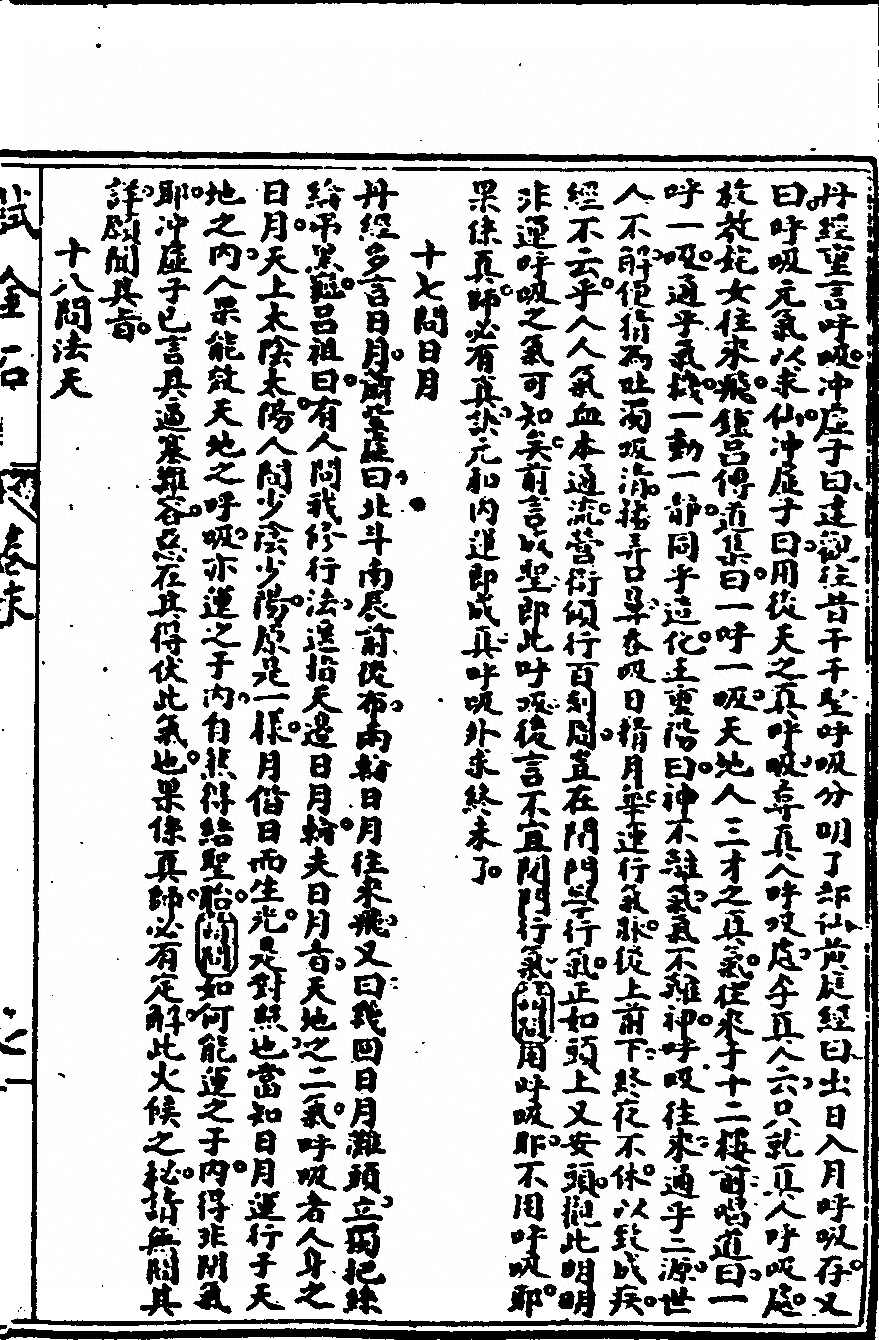 丹經重言呼吸冲虛子曰達觀往昔千千聖呼吸分明了却仙黃庭經曰出日入月呼吸存又
曰呼吸元氣以求仙冲虛子曰用從天之真呼吸尋真人呼吸處李真人云只就真人呼吸處
放教姹女往來飛鍾呂傳道集曰一呼一吸天地人三才之真氣往來于十二樓前唱道曰一
呼一吸通乎氣機一動一靜同乎造化王重陽曰神不離氣氣不離神呼吸往來通乎二源世
人不解便猜為吐濁吸清勝弄口鼻吞吸日精月華運行氣脉從上前下終夜不休以致成疾
經不云乎人人氣血本通流營衛傾行百刻周豈在閉門學行氣正如頭上又安頭觀此明明
非運呼吸之氣可知矣前言以聖即此呼吸後言不宜閉門行氣試問用呼吸耶不用呼吸耶
果係真師必有真訣元和內運即成真呼吸外求終未了
十七問日月
丹經多言日月蕭紫蓋曰北斗南辰前從布兩輪日月往來飛又曰幾回日月灘頭立獨把絲
綸吊黑龜呂祖曰有人問我修行法遥指天邊日月輪夫日月者天地之二氣呼吸者人身之
日月天上太陰太陽人間少陰少陽原是一樣月偕日而生光是對照也當知日月運行于天
地之內人果能效天地之呼吸亦運之于內自然得結聖胎試問如何能運之于內得非閉氣
耶冲虛子已言其逼塞難容惡在其得伏此氣也果係真師必有定解此火候之秘請無間其
詳願聞其旨
十八問法天
試金石 卷末 之一